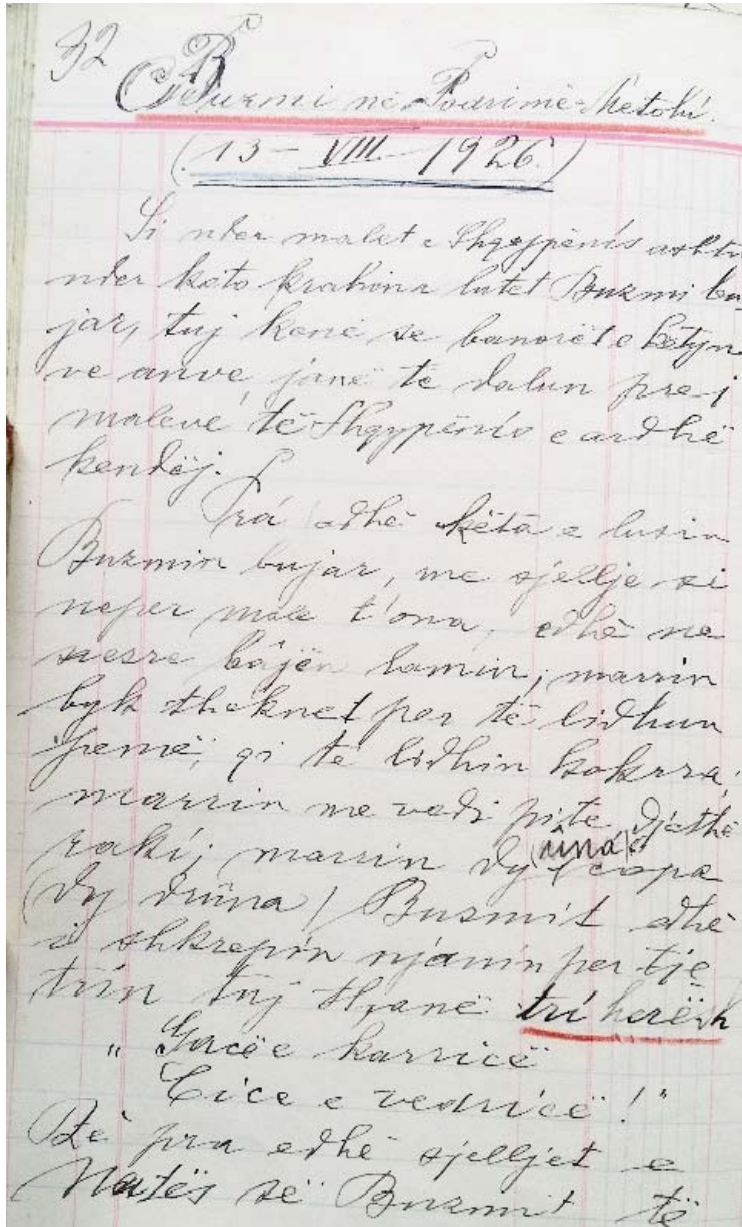 32
Buzmi në Podrimë-Metohí.
(13 – VIII – 1926.)
Si nder malet e Shqypënís ashtu
nder kato krahina lutet Buzmi bu-
jar, tuj kenë se banorët e këtyn-
ve anve, janë të dalun prej
maleve të Shqypënís e ardhë
kendëj.
Prá edhè këta e lusin
Buzmin bujar, me sjellje si
neper male t'ona, edhè ne
nesre bâjën lamin; marrin
byk theknet per të lidhun
pemë, qi të lidhin kokrra;
marrin me vedi pite djathë
rakí; marrin dy (úna) copa
(dy drûna) Buzmit edhè
i shkrepin njanin per tje-
trin tuj thanë trí herësh
" Gacë e karricë
Cice e vedricë! "
Zê pra edhè sjelljet e
Natës së Buzmit të